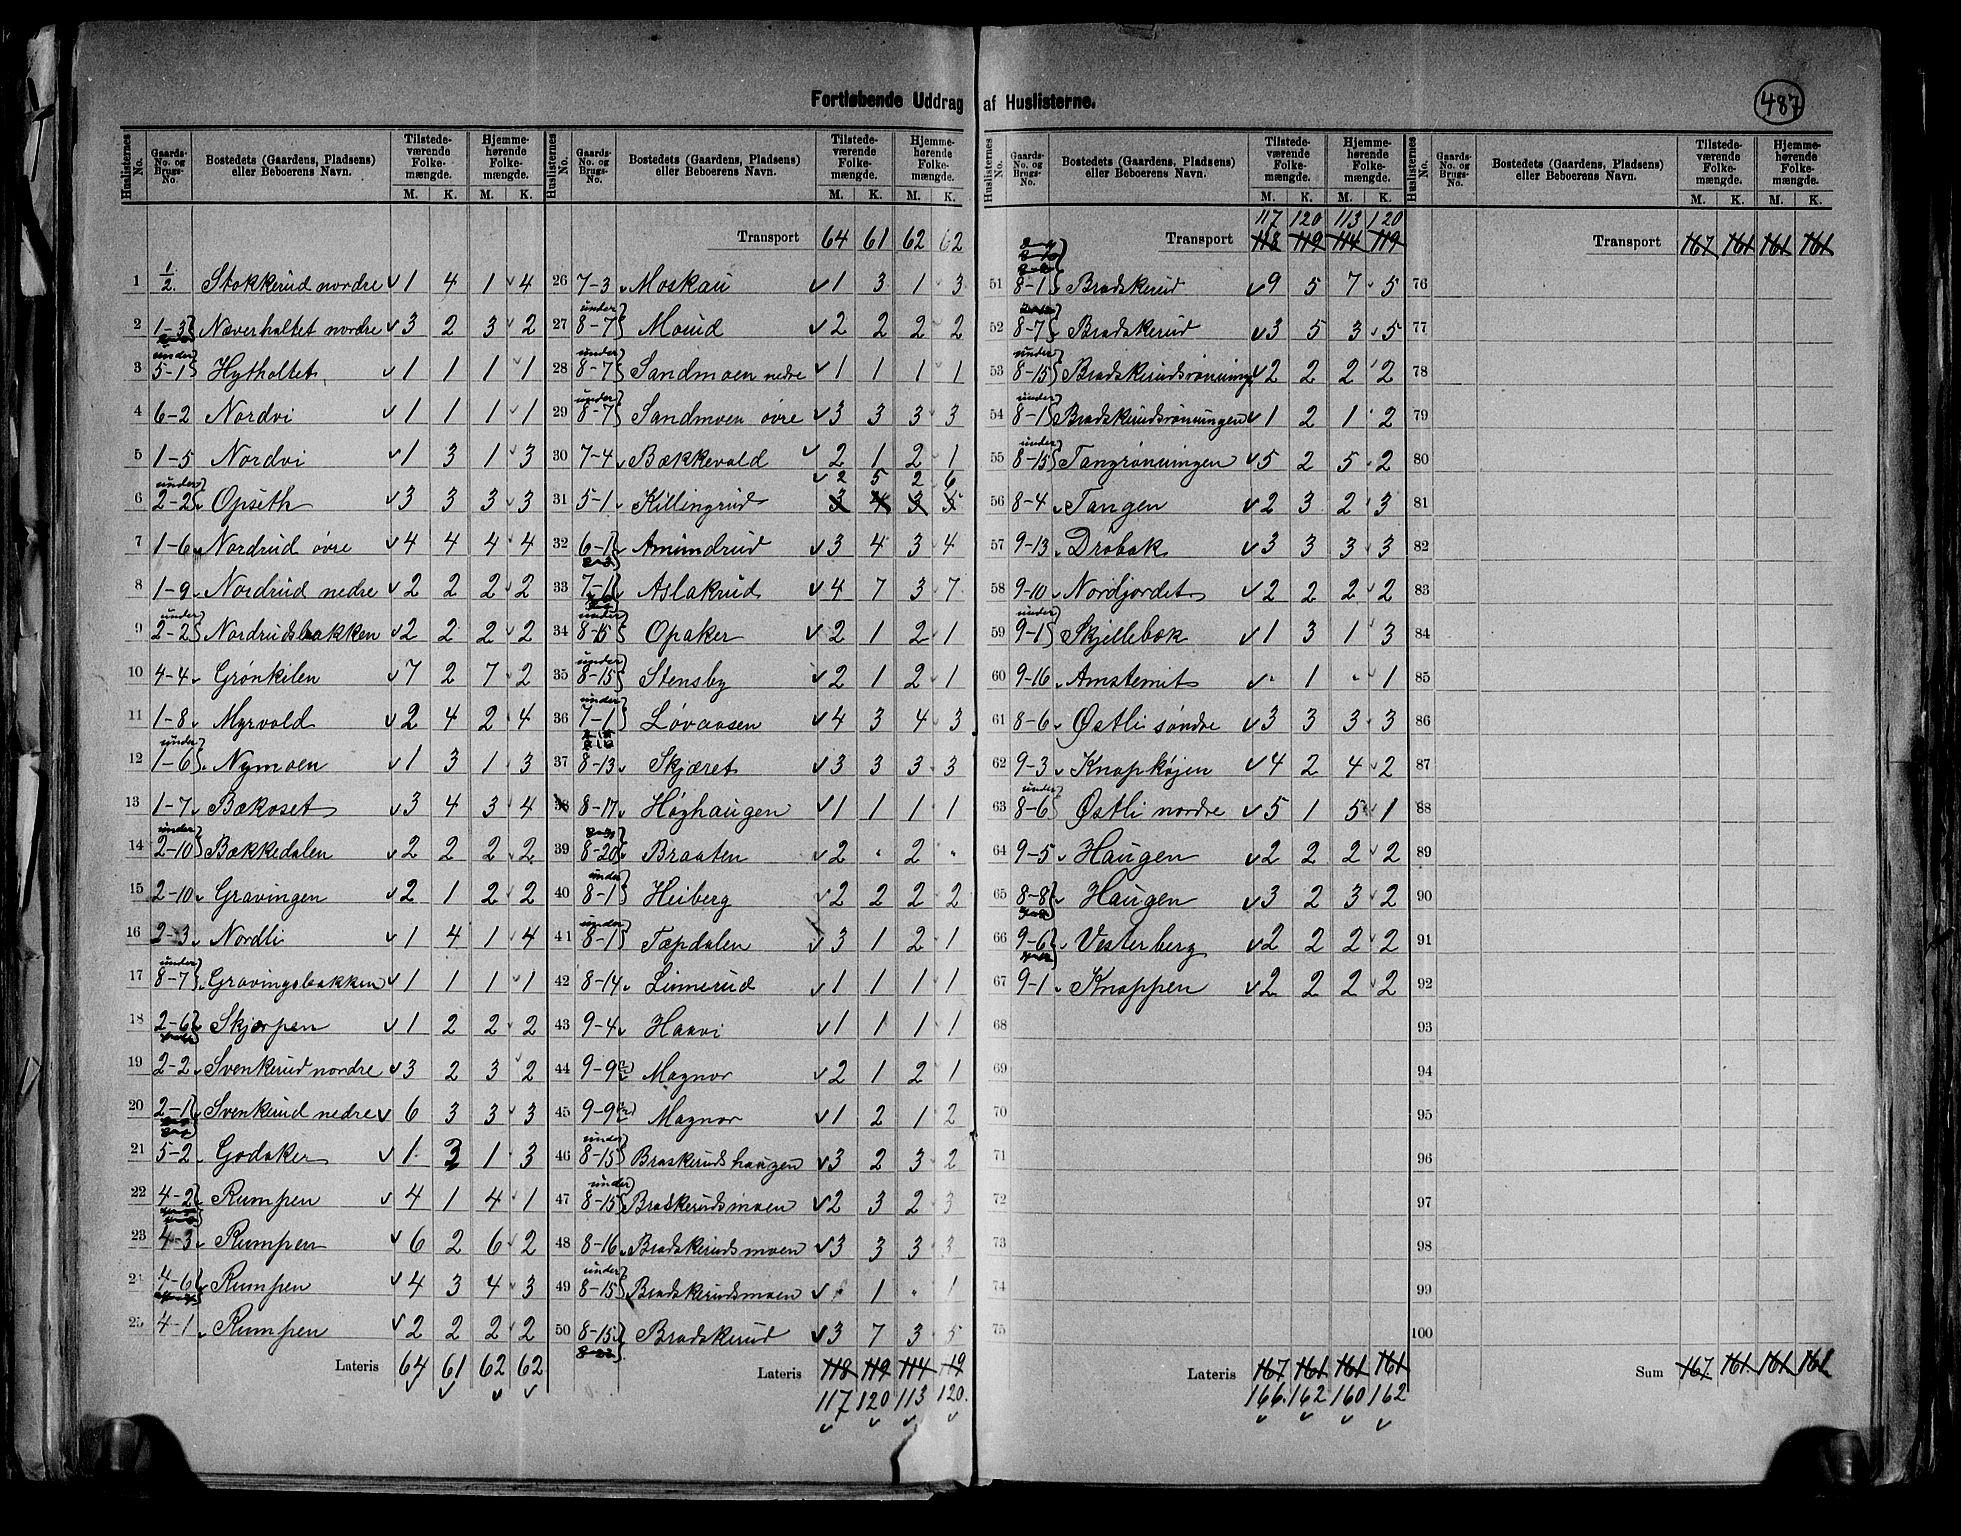 487
Fortløbende Uddrag af Huslisterne.
Huslisternes No. | Gaards-No. og Brugs-No. | Bostedets (Gaardens, Pladsens) eller Beboerens Navn. | Tilstedeværende Folkemængde. M. K. | Hjemmehørende Folkemængde. M. K.
1 1/2 Stokkerud nordre 1 4 1 4
2 1-3 Næverholtet nordre 3 2 3 2
3 under 5-1 Hytholtet 1 1 1 1
4 6-2 Nordvi 1 1 1 1
5 1-5 Nordvi 1 3 1 3
6 under 2-2 Opseth 3 3 3 3
7 1-6 Nordrud øvre 4 4 4 4
8 1-9 Nordrud nedre 2 2 2 2
9 under 2-2 Nordrudsbakken 2 2 2 2
10 4-4 Grønkilen 7 2 7 2
11 1-8 Myrvold 2 4 2 4
12 under 1-6 Nymoen 1 3 1 3
13 1-7 Bækoset 3 4 3 4
14 under 2-10 Bækkedalen 2 2 2 2
15 2-10 Gravingen 2 1 2 2
16 2-3 Nordli 1 4 1 4
17 under 8-7 Gravingsbakken 1 1 1 1
18 2-6 Skjørpen 1 2 2 2
19 2-2 Svenkerud nordre 3 2 3 2
20 2-1 Svenkerud nedre 6 3 3 3
21 5-2 Godaker 1 3 1 3
22 4-2 Rumpen 4 1 4 1
23 4-3 Rumpen 6 2 6 2
24 4-6 Rumpen 4 3 4 3
25 4-1 Rumpen 2 2 2 2
Lateris 64 61 62 62
Transport 64 61 62 62
26 7-3 Moskau 1 3 1 3
27 under 8-7 Morud 2 2 2 2
28 under 8-7 Sandmoen nedre 1 1 1 1
29 under 8-7 Sandmoen øvre 3 3 3 3
30 7-4 Bækkevold 2 1 2 1
2 5 2 6
31 5-1 Killingrud 3 4 3 5
32 6-1 Amundrud 3 4 3 4
33 7-1 Aslakrud 4 7 3 7
34 under 8-15 Opaker 2 1 2 1
35 under 8-15 Stensby 2 1 2 1
36 under 7-1 Løvaasen 4 3 4 3
37 8-13 Skjæret 3 3 3 3
38 8-17 Høghaugen 1 1 1 1
39 8-20 Braaten 2 " 2 "
40 under 8-1 Heiberg 2 2 2 2
41 under 8-1 Tæpdalen 3 1 2 1
42 8-14 Linnerud 1 1 1 1
43 9-4 Haavi 1 1 1 1
44 9-9 Magnor 2 1 2 1
45 9-9 Magnor 1 2 1 2
46 under 8-15 Braskerudshaugen 3 2 3 2
47 under 8-15 Braskerudsmoen 2 3 2 3
48 8-16 Bradskerudsmoen 3 3 3 3
49 under 8-15 Bradskerudsmoen " 1 " 1
50 8-15 Bradskerud 3 7 3 5
Lateris 118 119 114 119
117 120 113 120.
117 120 113 120
Transport 118 119 114 119
51 8-1 Bradskerud 9 5 7 5
52 8-7 Bradskerud 3 5 3 5
53 under 8-15 Bradskerudsrønning 2 2 2 2
54 under 8-1 Bradskerudsrønningen 1 2 1 2
55 under 8-15 Tangrønningen 5 2 5 2
56 8-4 Tangen 2 3 2 3
57 9-13 Drøbak 3 3 3 3
58 9-10 Nordjordet 2 2 2 2
59 under 9-1 Skjellebæk 1 3 1 3
60 9-16 Amstemit " 1 " 1
61 8-6 Østli søndre 3 3 3 3
62 9-3 Knapkøjen 4 2 4 2
63 under 8-6 Østli nordre 5 1 5 1
64 9-5 Haugen 2 2 2 2
65 8-8 Haugen 3 2 3 2
66 9-6 Vesterberg 2 2 2 2
67 9-1 Knappen 2 2 2 2
68
69
70
71
72
73
74
75
Lateris 167 161 161 161
166. 162 160 162
Transport 167 161 161 161
76
77
78
79
80
81
82
83
84
85
86
87
88
89
90
91
92
93
94
95
96
97
98
99
100
Sum 167 161 161 161